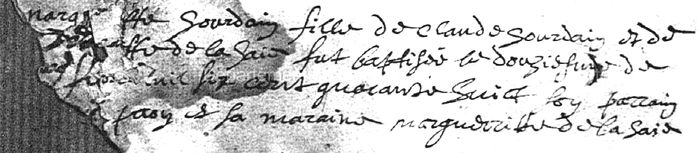 margte Sourdain fille de Claude Sourdain et de
de la Saie fut baptisée le douziesme de
mil six cent quarante huict son parrain
et sa maraine marguerritte de la Saie